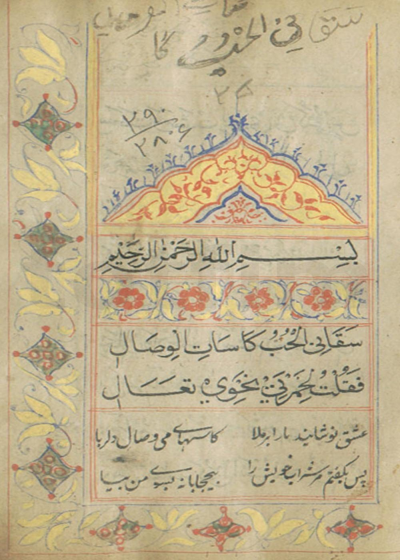 سقانی الحب
۲۹۰
بِسْمِ اللهِ الرَّحْمٰنِ الرَّحِيْمِ
سَقَانِي الْحُبُّ كَاسَاتِ الْوِصَالِ
فَقُلْتُ لِخَمْرَتِيْ نَحْوِيْ تَعَالِ
عشق نوشانید مارا برملا کاسهای می وصال دلربا
پس بگفتم مر شراب خویش را بیحجابانه بسوی من بیا